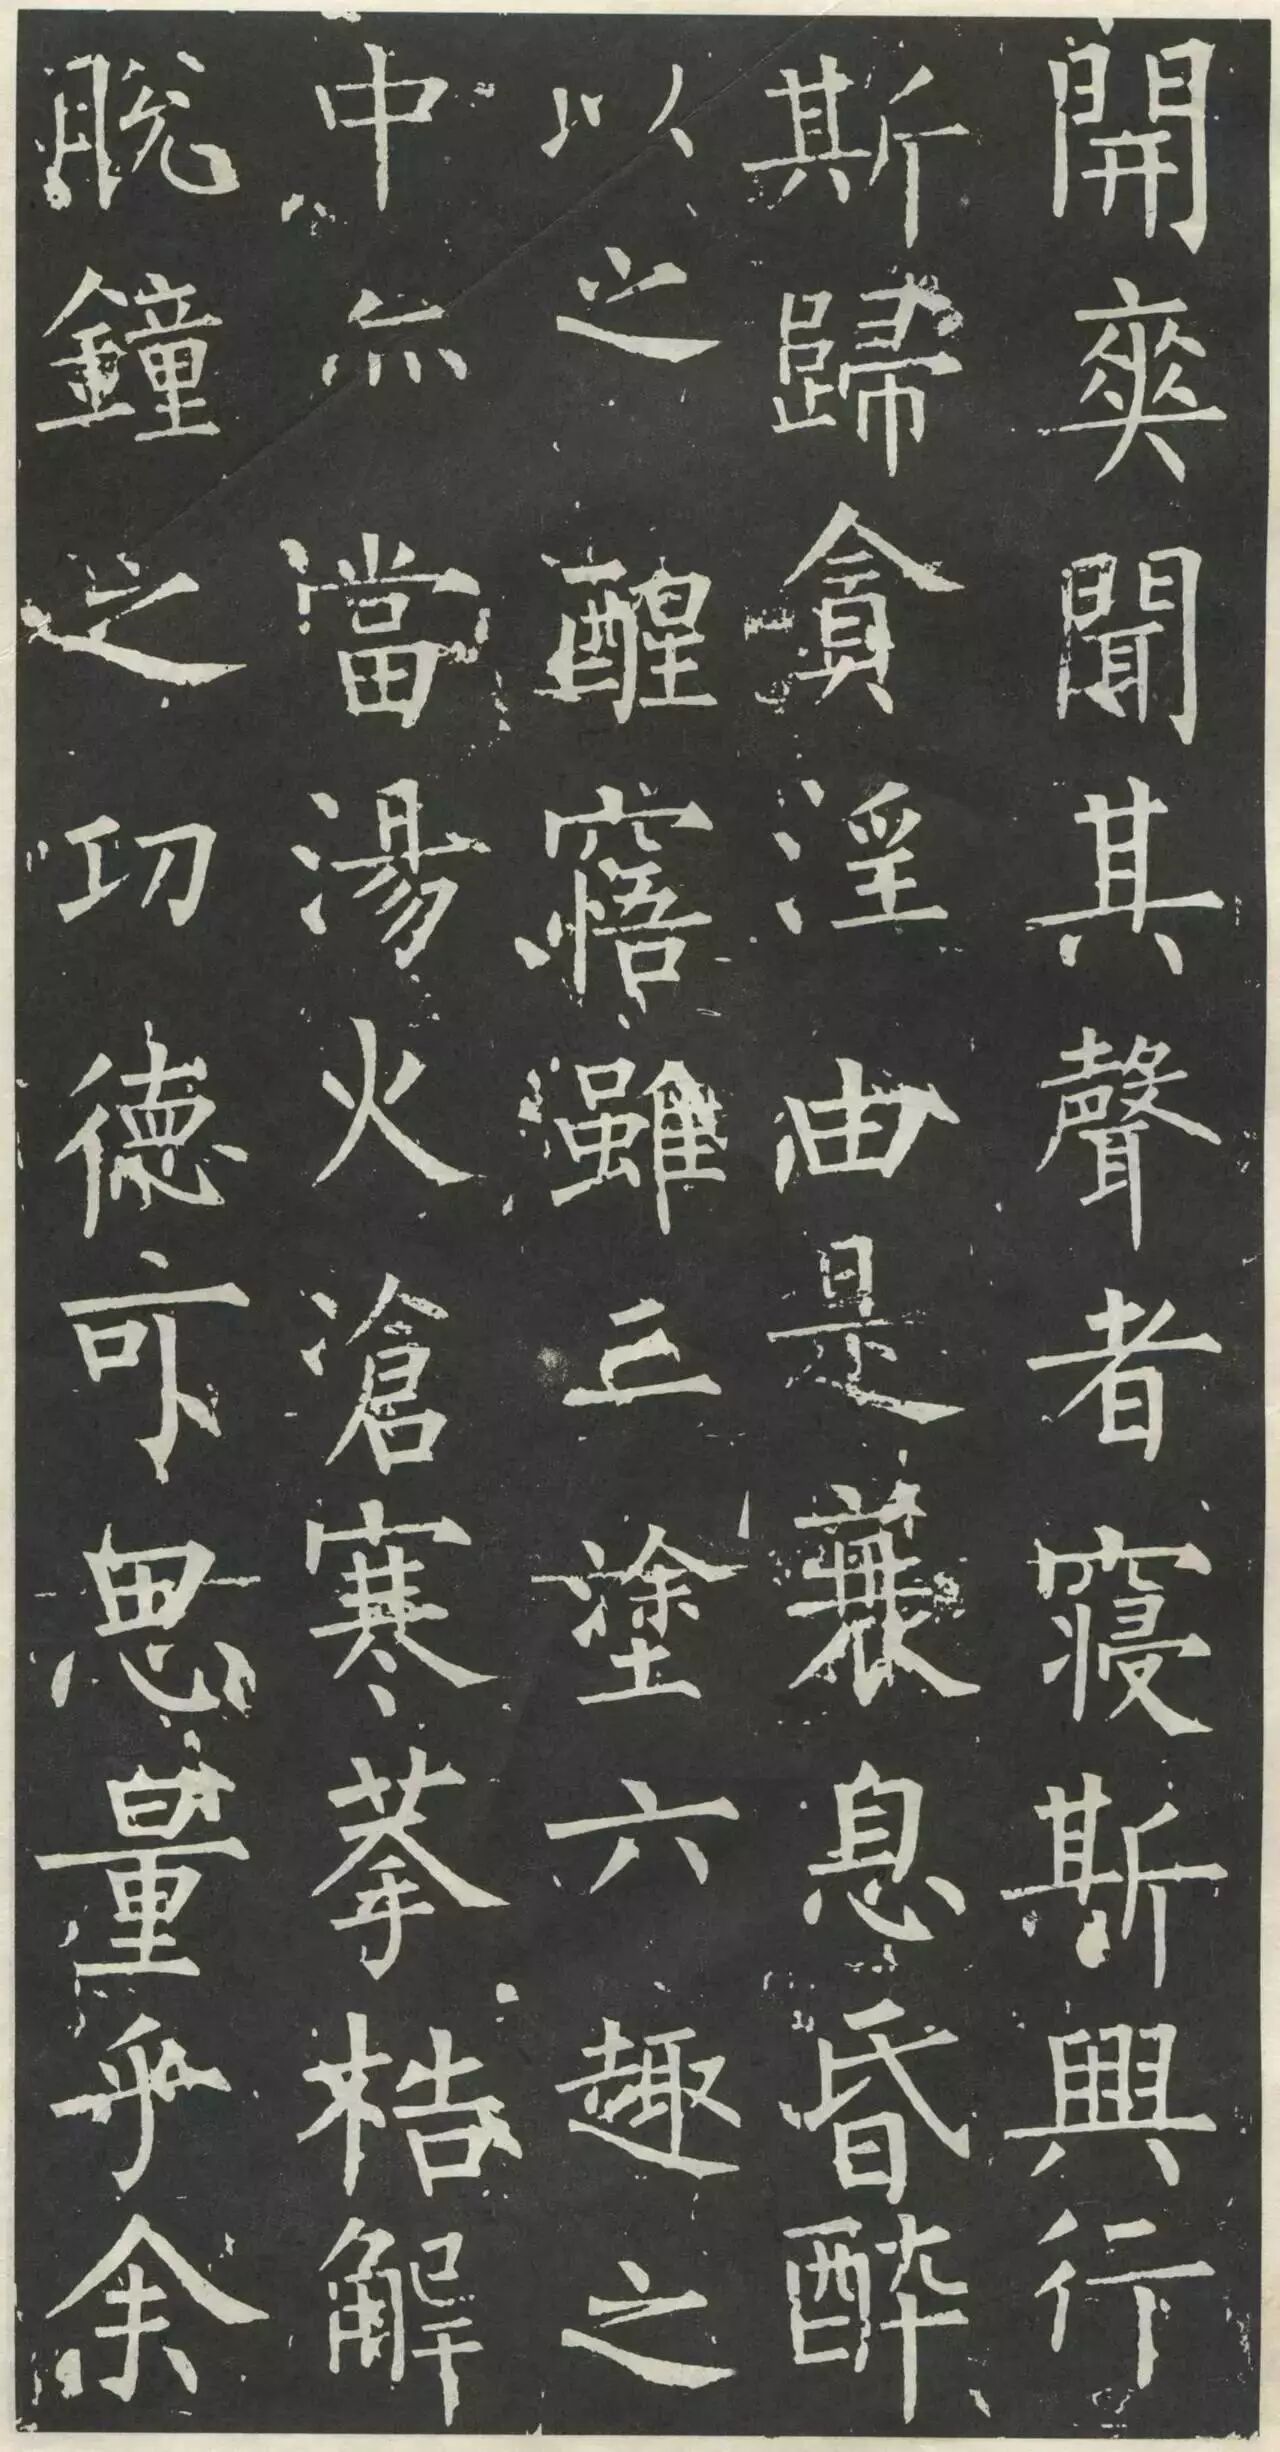 開爽聞其聲者寢斯興行
斯歸貪淫由是蘘息昏醉
以之醒寤雖三塗六趣之
中亦當湯火滄寒拲梏解
脫鐘之功德可思量乎余